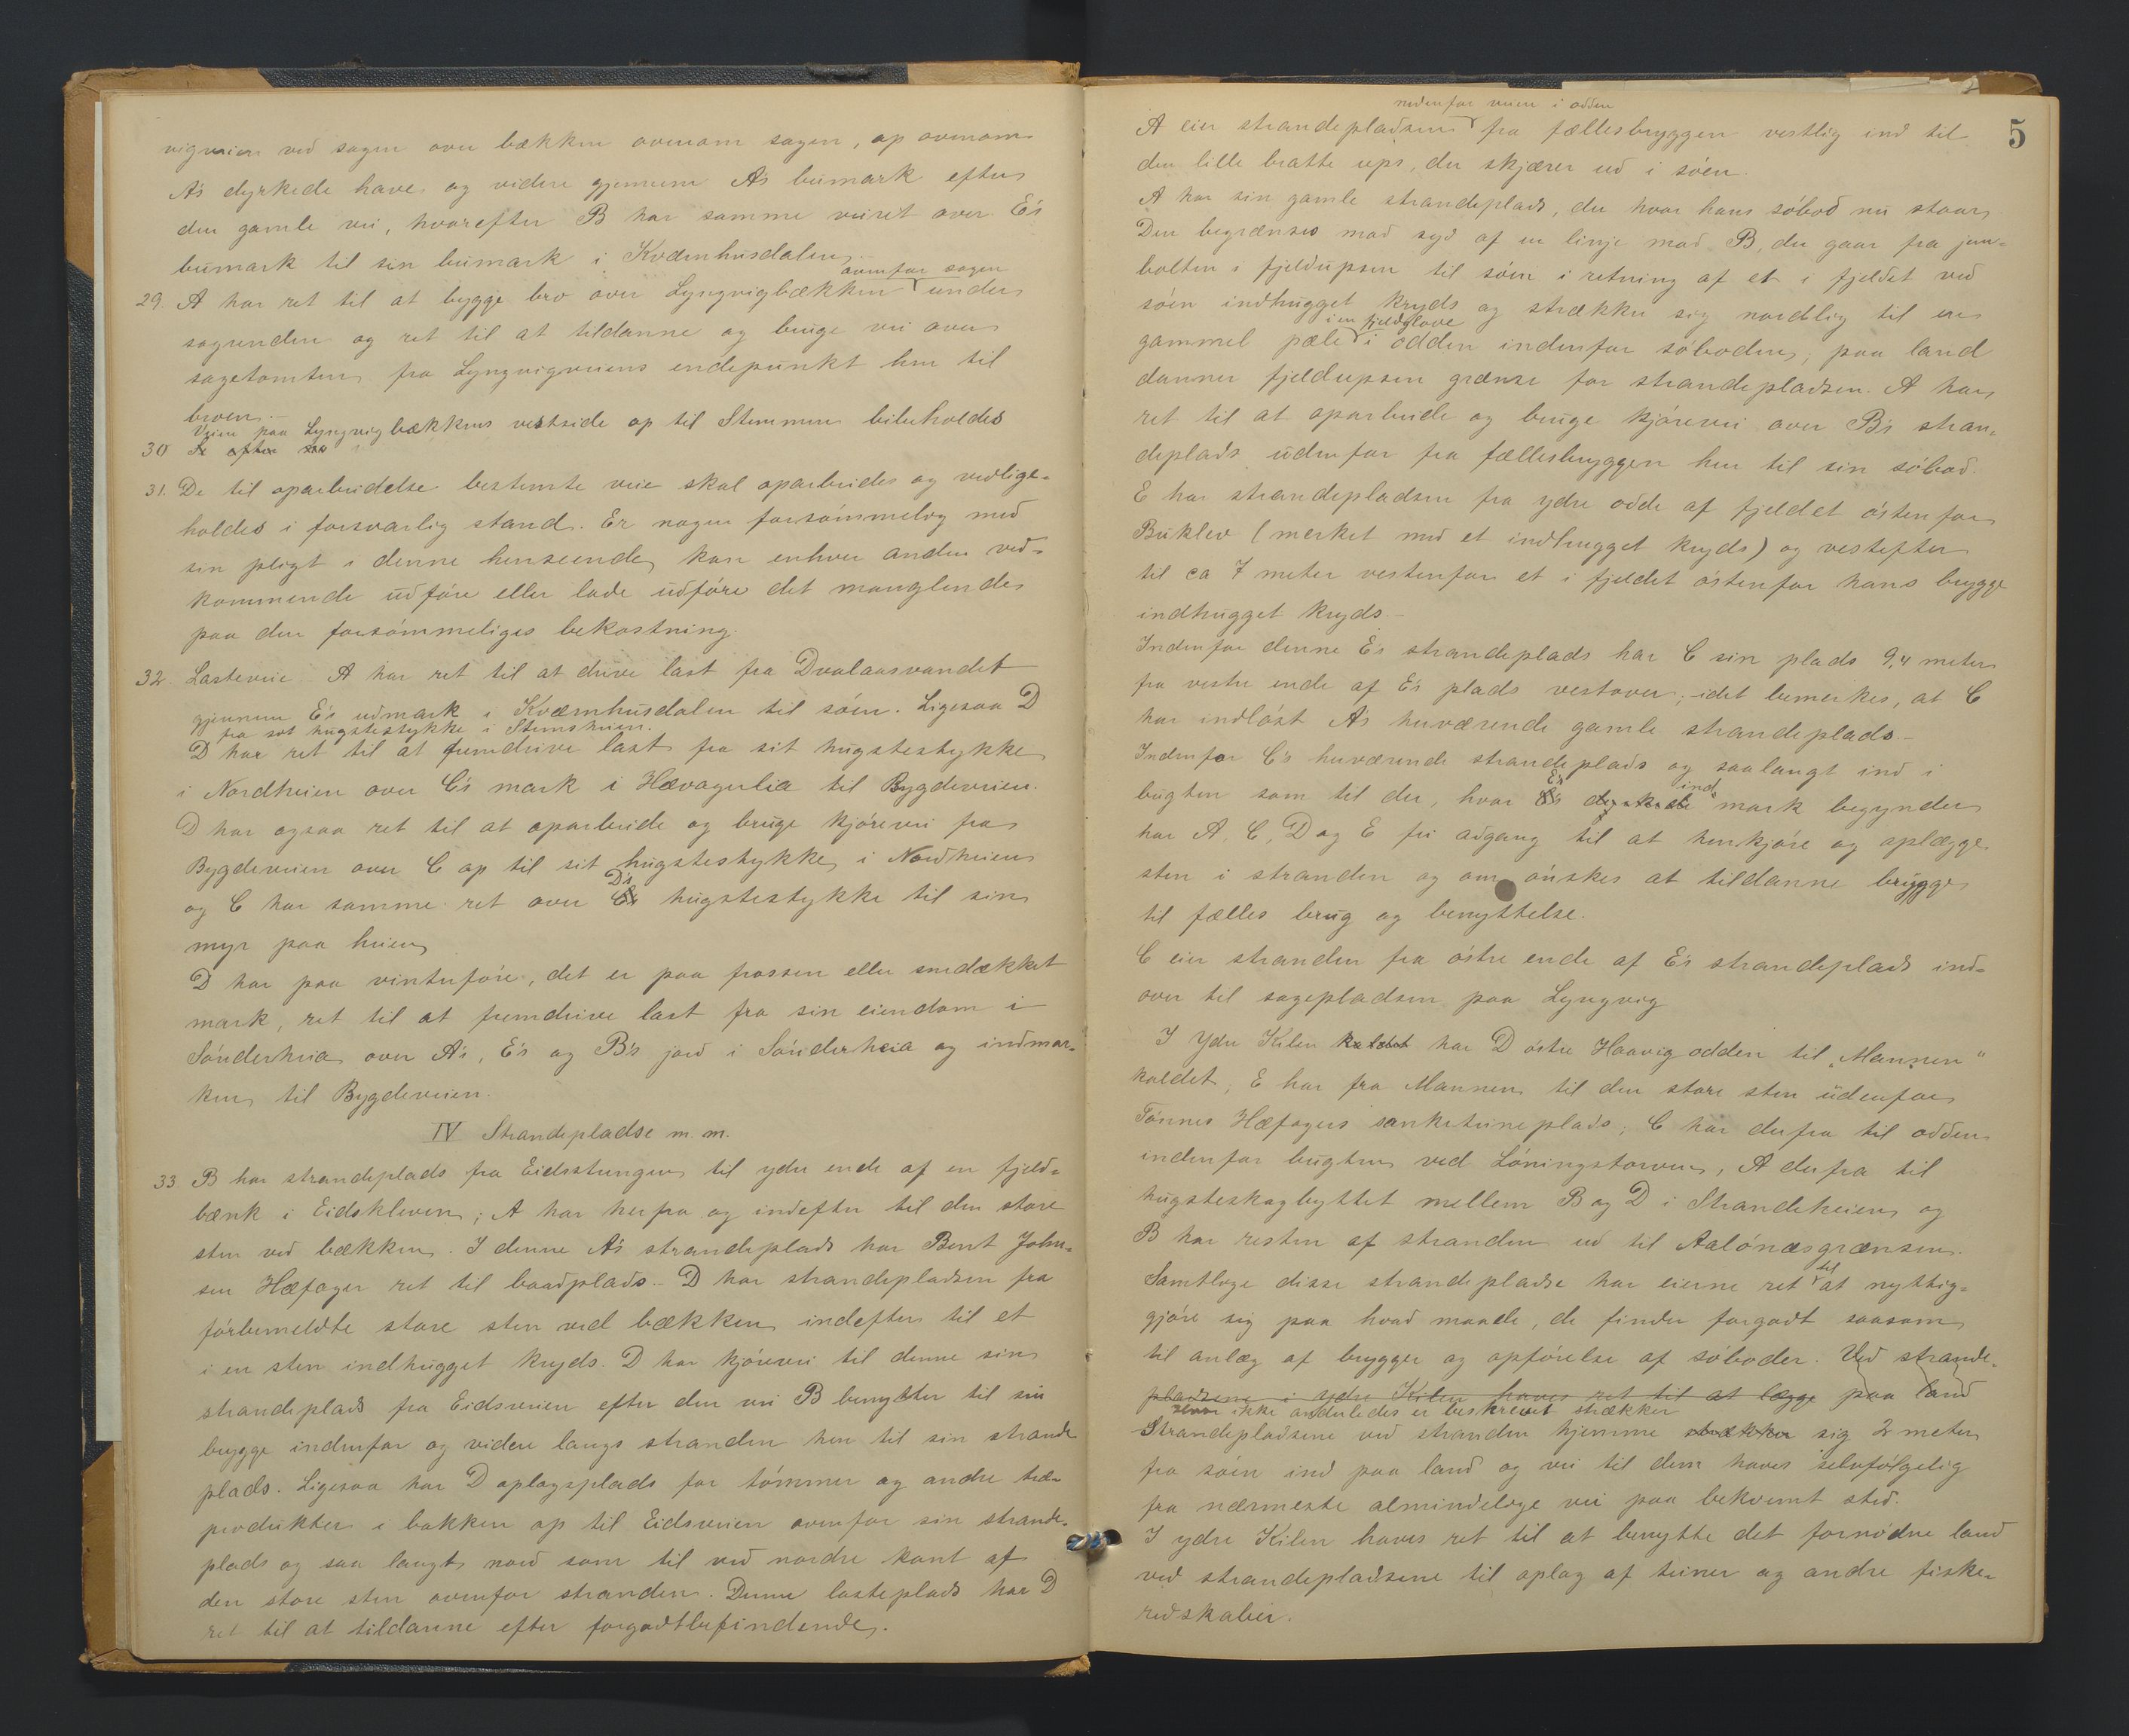 vigveien ved sagen over bækken ovenom sagen, op ovenom
A's dyrkede have og videre gjennem A's bumark efter
den gamle vei, hvorefter B har samme veiret over E's
bumark til sin bumark i Kværnhusdalen.
ovenfor sagen
29. A har ret til at bygge bro over Lyngvigbækken under
sagrenden og ret til at tildanne og bruge vei over
sagetomten fra Lyngvigveiens endepunkt hen til
broen.-
Veien paa Lyngvigbækkens vestside op til Stemmen bibeholdes
30
31. De til oparbeidelse bestemte veie skal oparbeides og vedlige-
holdes i forsvarlig stand. Er nogen forsømmelig med
sin pligt i denne henseende, kan enhver anden ved-
kommende udføre eller lade udføre det manglende
paa den forsømmeliges bekostning.
32. Lasteveie. A har ret til at drive last fra Dvalaasvandet
gjennem E's udmark i Kværnhusdalen til søen. Ligesaa D
fra sot hugstestykke i Stemsheien.
D har ret til at fremdrive last fra sit hugstestykke
i Nordheien over C's mark i Hævagerlia til Bygdeveien.
D har ogsaa ret til at oparbeide og bruge kjørevei fra
Bygdeveien over C op til sit hugstestykke i Nordheien
og C har samme ret over D's hugstestykke til sin
myr paa heien
D har paa vinterføre, det er paa frossen eller snedækket
mark, ret til at fremdrive last fra sin eiendom i
Sønderheia over A's, E's og B's jord i Sønderheia og indmar-
ken til Bygdeveien.
IV Strandepladse m. m.
33. B har strandeplads fra Eidsstangen til ydre ende af en fjeld-
bænk i Eidskleven; A har herfra og indefter til den store
sten ved bækken. I denne A's strandeplads har Bent John-
sen Hæfager ret til baadplads.- D har strandepladsen fra
førbemeldte store sten ved bækken indefter til et
i en sten indhugget kryds. D har kjørevei til denne sin
strandeplads fra Eidsveien efter den vei B benytter til sin
brygge indenfor og videre langs stranden hen til sin strande
plads. Ligesaa har D oplagsplads for tømmer og andre træ-
produkter i bakken op til Eidsveien ovenfor sin strande-
plads og saa langt nord som til ved nordre kant af
den store sten ovenfor stranden. Denne lasteplads har D
ret til at tildanne efter forgodtbefindende.
5
nedenfor veien i odden
A eier strandepladsen fra fællesbryggen vestlig ind til
den lille bratte ups, der skjærer ud i søen.
A har sin gamle strandeplads, der hvor hans søbod nu staar.
Den begrænses mod syd af en linje mod B, der gaar fra jern-
bolten i fjeldupsen til søen i retning af et i fjeldet ved
søen indhugget kryds og strækker sig nordlig til en
i en fjeldglove
gammel pæle i odden indenfor søboden; paa land
danner fjeldupsen grænse for strandepladsen. A har
ret til at oparbeide og bruge kjørevei over B's stran-
deplads udenfor fra fællesbryggen hen til sin søbod.
E har strandepladsen fra ydre odde af fjeldet østenfor
Buklev (merket med et indhugget kryds) og vestefter
til ca 7 meter vestenfor et i fjeldet østenfor hans brygge
indhugget kryds.-
Indenfor denne E's strandeplads har C sin plads 9,4 meter
fra vestre ende af E's plads vestover; idet bemerkes, at C
har indløst A's herværende gamle strandeplads.-
Indenfor C's herværende strandeplads og saalangt ind i
bugten som til der, hvor E's indmark begynder
har A, C, D og E fri adgang til at henkjøre og oplægge
sten i stranden og om ønskes at tildanne brygge
til fælles brug og benyttelse.
C eier stranden fra østre ende af E's strandeplads ind-
over til sagepladsen paa Lyngvig
I Ydre Kilen kaldet har D østre Haavigodden til „Mannen"
kaldet, E har fra Mannen til den store sten udenfor
Tønnes Hæfagers sanketeineplads; C har derfra til odden
indenfor bugten ved Løningstoven, A derfra til
hugsteskogbyttet mellem B og D i Strandeheien og
B har resten af stranden ud til Aalønæsgrænsen.
Samtlige disse strandepladse har eierne ret til at nyttig-
gjøre sig paa hvad maade, de finder forgodt saasom
til anlæg af brygger og opførelse af søboder. Ved strande-
pladsene i ydre Kilen haves ret til at lægge paa land
ikke anderledes er beskrevet strækker
Strandepladsene ved stranden hjemme strækker sig 2 meter
fra søen ind paa land og vei til dem haves selvfølgelig
fra nærmeste almindelige vei paa bekvemt sted.
I ydre Kilen haves ret til at benytte det fornødne land
ved strandepladsene til oplag af teiner og andre fiske-
redskaber.